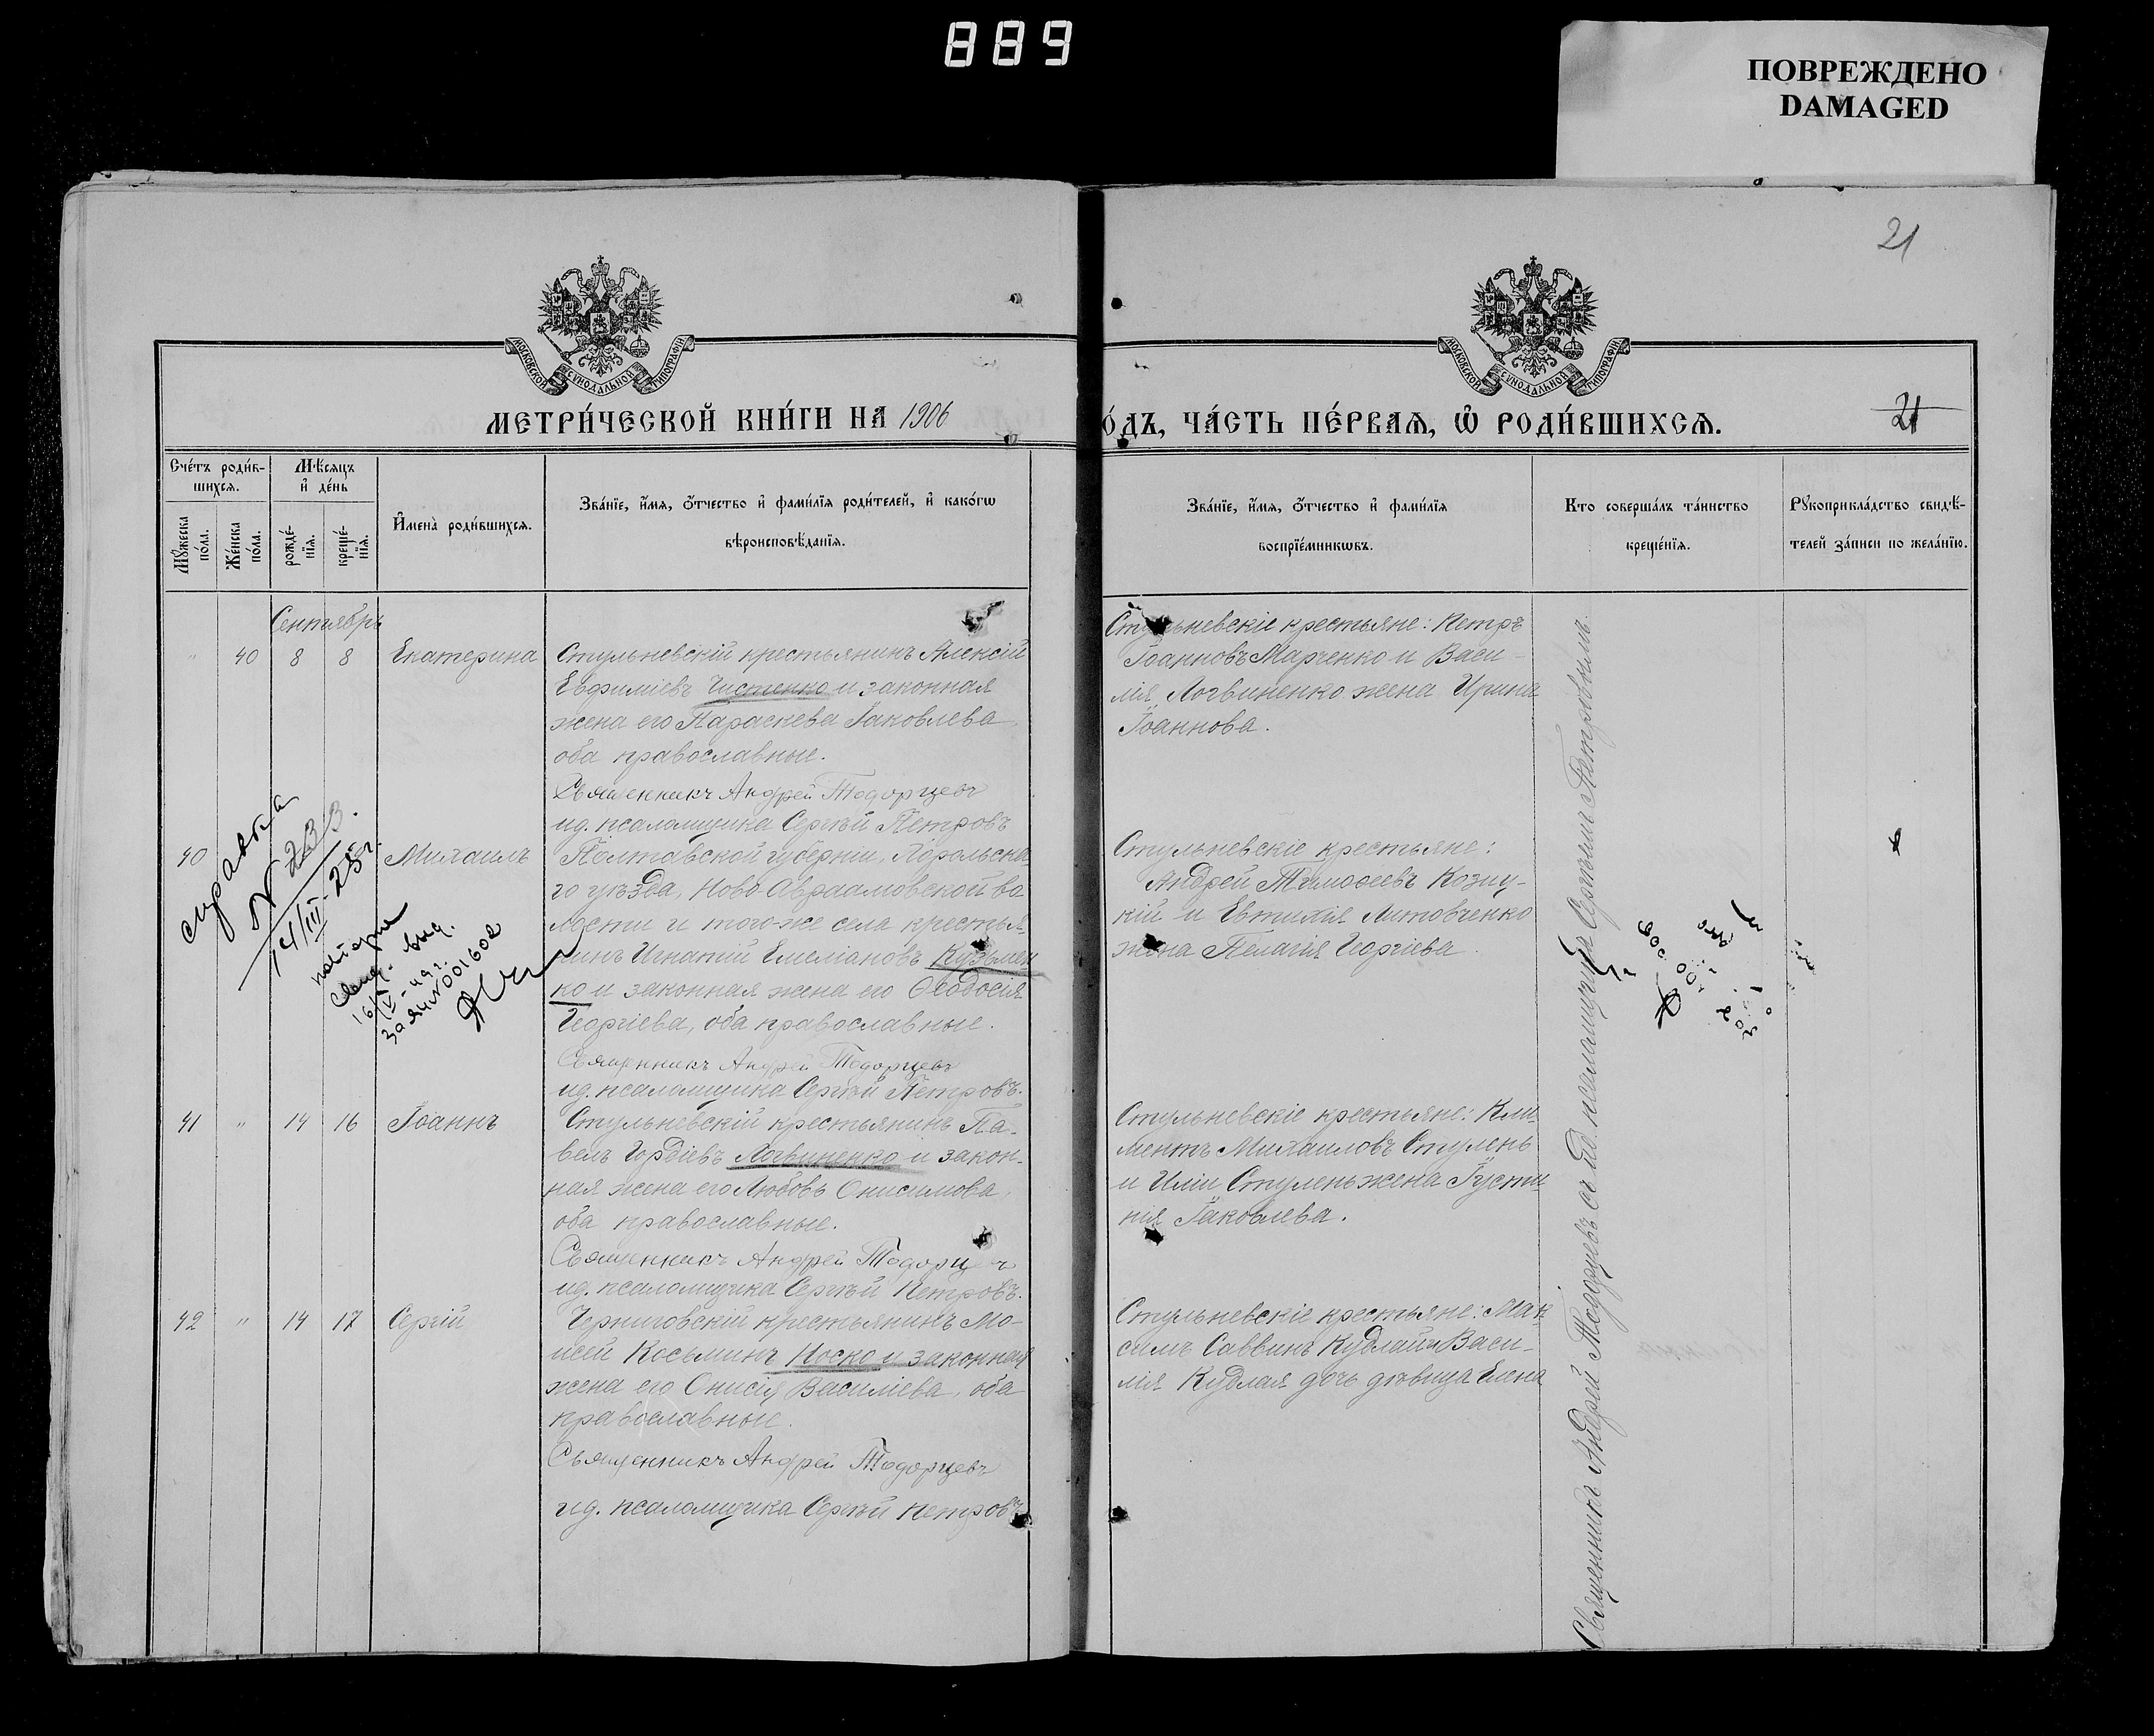 889
ПОВРЕЖДЕНО
DAMAGED
21
МОСКОВСКОЙ СѴНОДАЛЬНОЙ ТИПОГРАФІИ
МОСКОВСКОЙ СѴНОДАЛЬНОЙ ТИПОГРАФІИ
МЕТРИ́ЧЕСКОЙ КНИ́ГИ НА 1906
О́ДЪ, ЧА́СТЬ ПЕ́РВАѦ, Ѽ РОДИ́ВШИХСѦ.
21
Сче́тъ роди́в-
шихсѧ.
Мꙋ́жеска
по́ла.
Же́нска
по́ла.
Мѣ́сяцъ
и҆ де́нь
рожде́-
нїѧ.
креще́-
нїѧ.
И҆мена̀ роди́вшихсѧ.
Зва́нїе, и҆́мѧ, ѻ҆́тчество и҆ фами́лїѧ роди́телей, и҆ како́гѡ
вѣроисповѣ́данїѧ.
Зва́нїе, и҆́мѧ, ѻ҆́тчество и҆ фами́лїѧ
воспрїе́мникѡвъ.
Кто соверша́лъ та́инство
креще́нїѧ.
Рꙋкоприкла́дство свидѣ́-
телей за́писи по жела́нїю.
Сентябрь
" 40 8 8 Екатерина
Стульневскій крестьянинъ Алексій
Евфиміевъ Чистенко и законная
жена его Параскева Іаковлева
оба православные.
Священникъ Андрей Тодорцевъ
ид. псаломщика Сергѣй Петровъ
Стульневскіе крестьяне: Петръ
Іоанновъ Марченко и Васи-
лія Логвиненко жена Ирина
Іоаннова.
40 Михаилъ
справка
N 233.
14/III-25г.
повторне
свид. выд.
16/IV-49г.
за ЯИN001602
Полтавской губерніи, Хорольска-
го уѣзда, Ново-Авраамовской во
лости и того-же села, крестья-
нинъ Игнатій Емеліановъ Кузьмен
ко и законная жена его Ѳеодосія
Георгіева, оба православные.
Священникъ Андрей Тодорцевъ
ид. псаломщика Сергѣй Петровъ.
Стульневскіе крестьяне:
Андрей Тимоѳеевъ Козиц-
кій и Евтихія Литовченко
жена Пелагія Георгіева.
41 " 14 16 Іоаннъ
Стульневскій крестьянинъ Па-
велъ Гордіевъ Логвиненко и закон-
ная жена его Любовь Онисимова,
оба православные.
Священникъ Андрей Тодорцевъ
ид. псаломщика Сергѣй Петровъ.
Стульневскіе крестьяне: Кли-
ментъ Михаиловъ Ступень
и Иліи Ступень жена Іусти-
нія Іаковлева.
42 " 14 17 Сергій
Черниговскій крестьянинъ Мо-
исей Косьминъ Носко и законная
жена его Онисія Василіева, оба
православные.
Священникъ Андрей Тодорцевъ
ид. псаломщика Сергѣй Петровъ
Стульневскіе крестьяне: Мак-
симъ Саввинъ Кудлай и Васи-
лія Кудлая дочь дѣвица Елена
Священникъ Андрей Тодорцевъ съ ид. псаломщика Сергѣемъ Петровымъ.